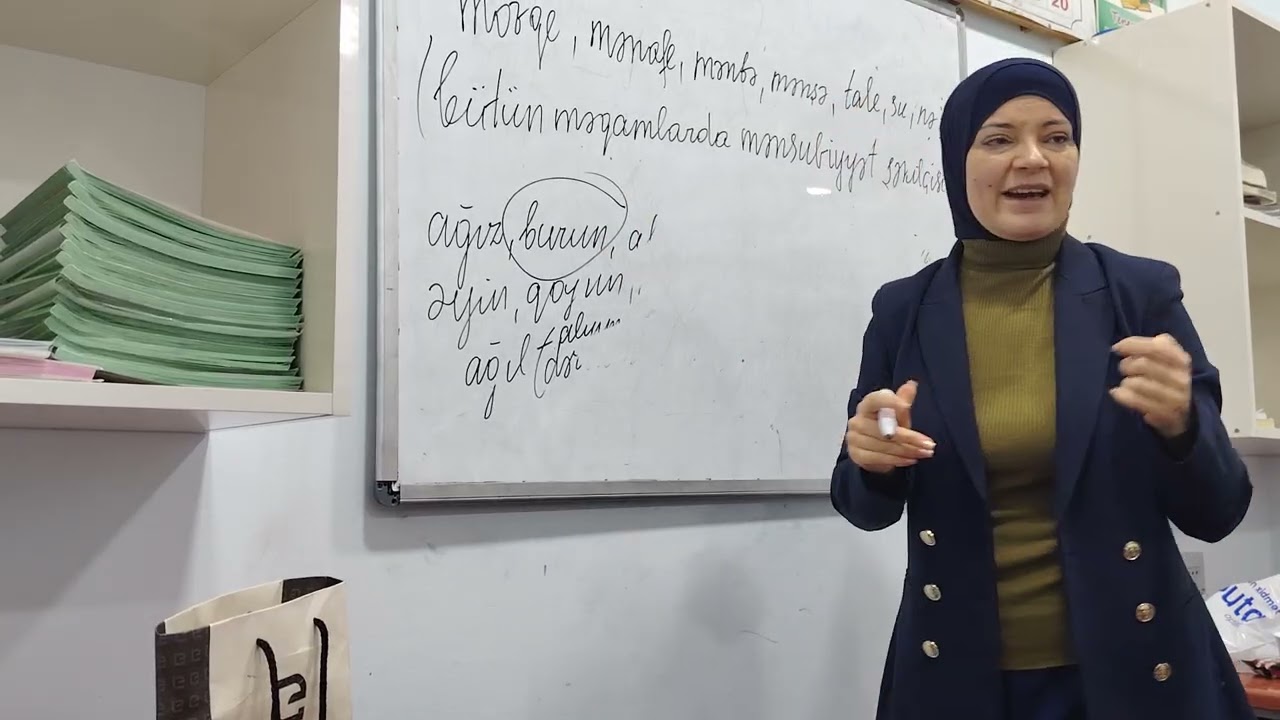 mövqe, mənafe, mənbə, mənşə, tale, su, nə
(bütün məqamlarda mənsubiyyət şəkilçisi
ağız, burun, al
əyin, qoyun,..
ağıl (
20